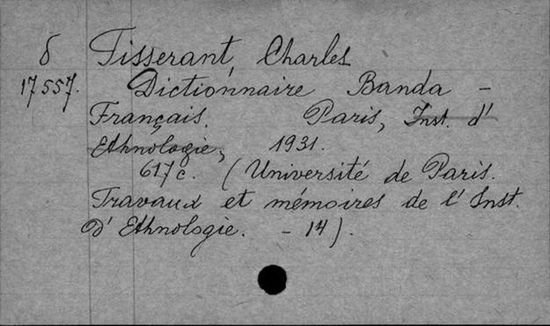 δ Tisserant, Charles
17557. Dictionnaire Banda -
Français. Paris, Inst. d'
Ethnologie, 1931.
617c. (Université de Paris.
Travaux et mémoires de l'Inst.
D'Ethnologie. - 14).